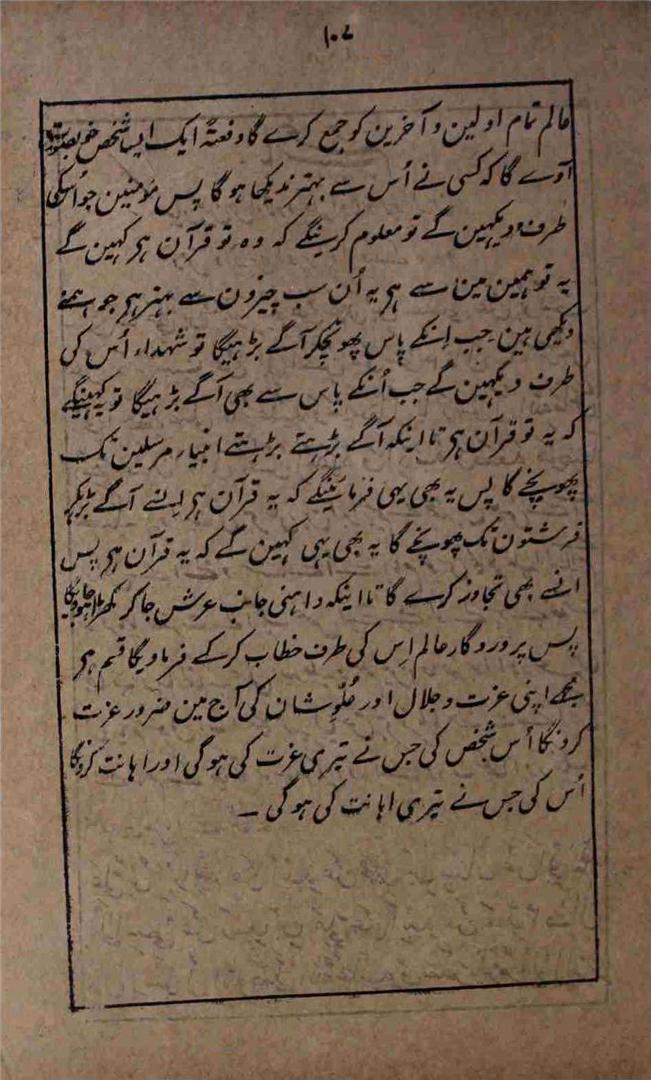 ۱۰۷
عالم تمام اولین و آخرین کو جمع کرے گا دفعتہً ایک ایسا شخص خوبصورت
آوے گا کہ کسی نے اُس سے بہتر ندیکھا ہوگا پس مؤمنین جو اُسکی
طرف دیکہین گے تو معلوم کرینگے کہ وہ تو قرآن ہر کہین گے
یہ تو ہمین مین سے ہر یہ اُن سب چیزون سے بہتر ہر جو ہمنے
دیکھی ہین جب اِنکے پاس پھونچکر آگے بڑہیگا تو شہداء اُس کی
طرف دیکہین گے جب اُنکے پاس سے بھی آگے بڑہیگا تو یہ کہینگے
کہ یہ تو قرآن ہر تا اینکہ آگے بڑہتے بڑہتے انبیاء مرسلین تک
پھونچے گا پس یہ بھی یہی فرمائینگے کہ یہ قرآن ہر اِنسے آگے بڑہکر
فرشتون تک پھونچے گا یہ بھی یہی کہین گے کہ یہ قرآن ہر پس
انسے بھی تجاوز کرے گا تا اینکہ داہنی جانب عرش جاکر کھڑا ہوجایگا
پس پروردگار عالم اِس کی طرف خطاب کرکے فرماویگا قسم ہر
مجھے اپنی عزت و جلال اور عُلوِّ شان کی آج مین ضرور عزت
کرونگا اُس شخص کی جس نے تیری عزت کی ہوگی اور اہانت کرونگا
اُس کی جس نے تیری اہانت کی ہوگی ۔